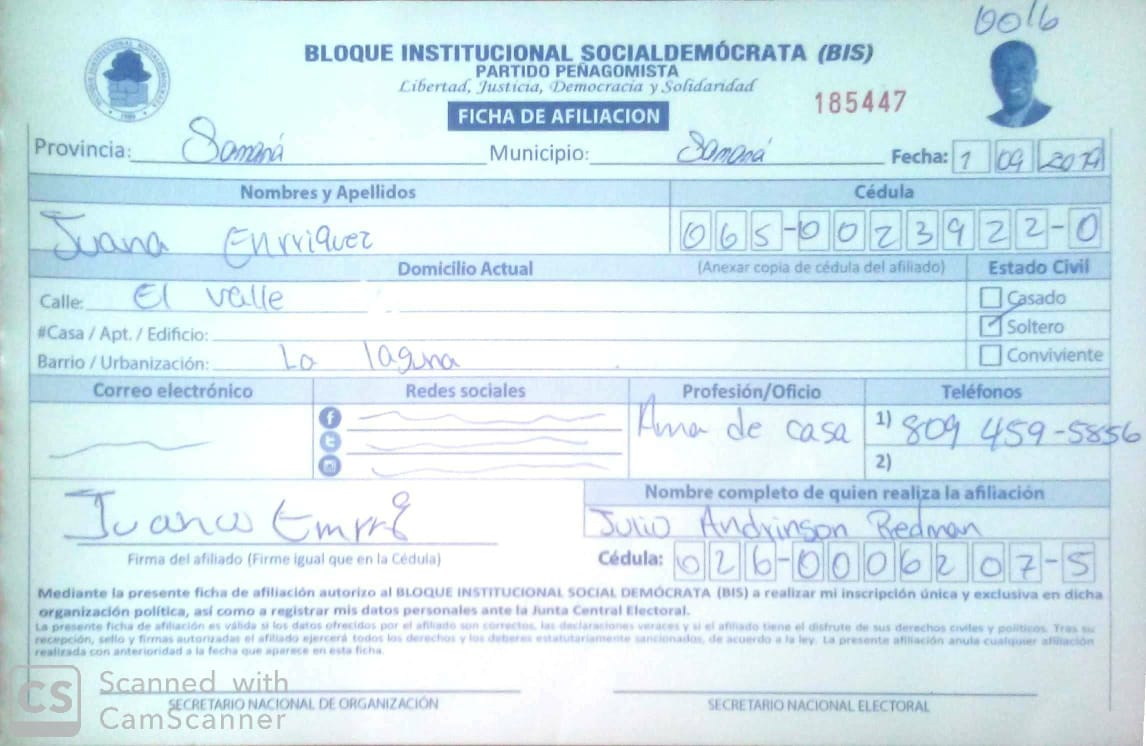 0016
BLOQUE INSTITUCIONAL SOCIALDEMÓCRATA (BIS)
PARTIDO PEÑAGOMISTA
Libertad, Justicia, Democracia y Solidaridad
185447
FICHA DE AFILIACION
Provincia: Samaná Municipio: Samaná Fecha: 1 09 2019
Nombres y Apellidos Cédula
Juana Enrriquez 065-0023922-0
Domicilio Actual (Anexar copia de cédula del afiliado) Estado Civil
Calle: El valle Casado
#Casa / Apt. / Edificio: Soltero
Barrio / Urbanización: La laguna Conviviente
Correo electrónico Redes sociales Profesión/Oficio Teléfonos
Ama de casa 1) 809 459-5856
2)
Nombre completo de quien realiza la afiliación
Juana Julio Andrinson Redman
Firma del afiliado (Firme igual que en la Cédula) Cédula: 026-0006207-5
Mediante la presente ficha de afiliación autorizo al BLOQUE INSTITUCIONAL SOCIAL DEMÓCRATA (BIS) a realizar mi inscripción única y exclusiva en dicha
organización política, así como a registrar mis datos personales ante la Junta Central Electoral.
La presente ficha de afiliación es válida si los datos ofrecidos por el afiliado son correctos, las declaraciones veraces y si el afiliado tiene el disfrute de sus derechos civiles y políticos. Tras su
recepción, sello y firmas autorizadas el afiliado ejercerá todos los derechos y los deberes estatutariamente sancionados, de acuerdo a la ley. La presente afiliación anula cualquier afiliación
realizada con anterioridad a la fecha que aparece en esta ficha.
SECRETARIO NACIONAL DE ORGANIZACIÓN SECRETARIO NACIONAL ELECTORAL
CS Scanned with
CamScanner